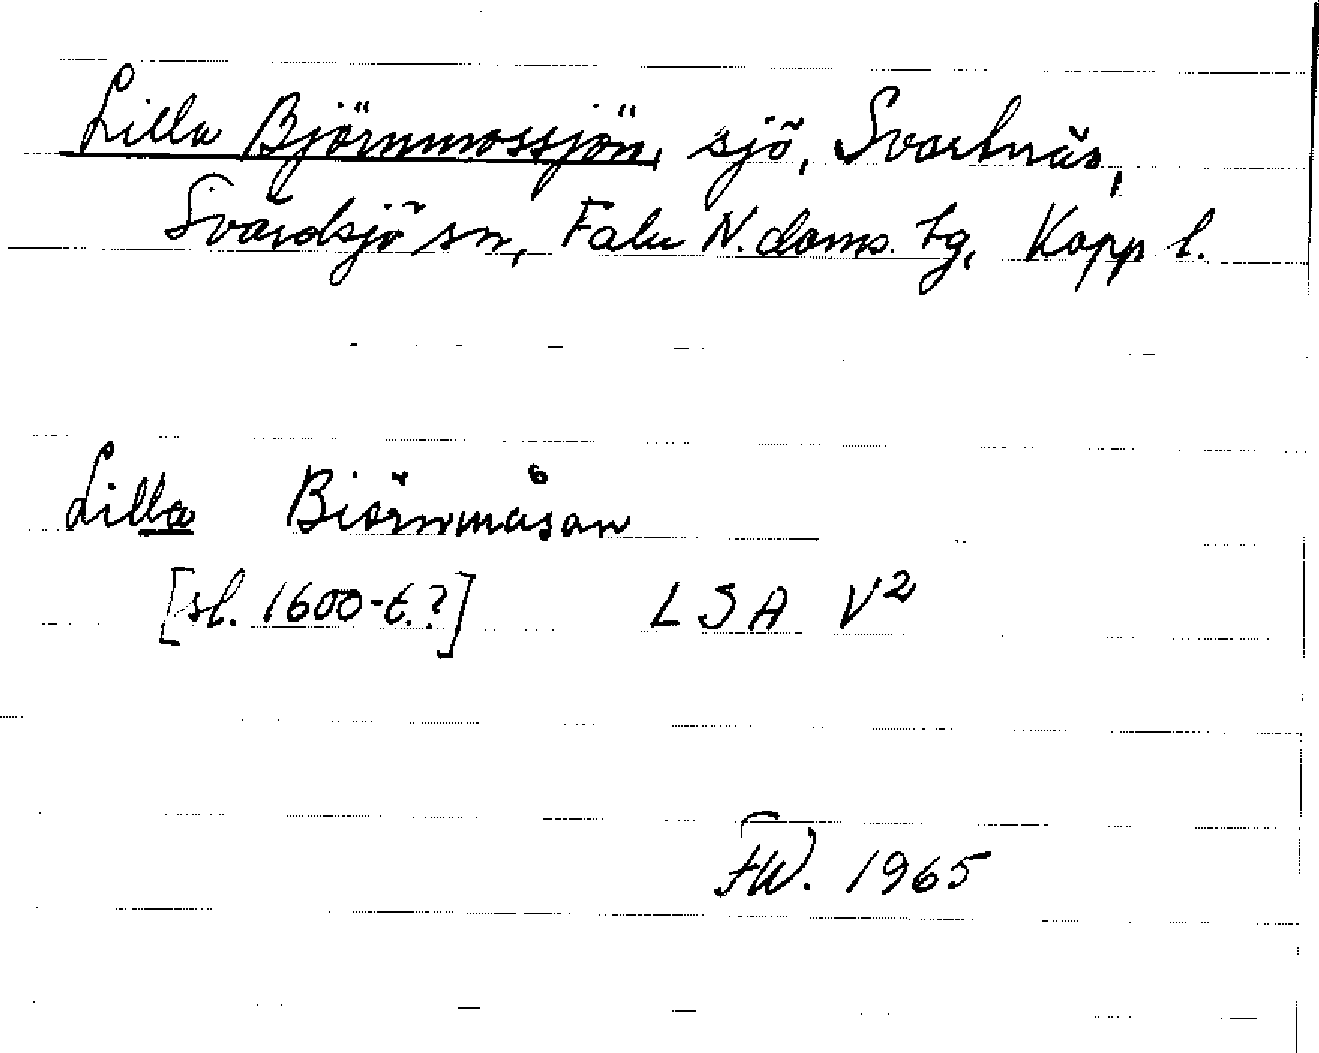 Lilla Björnmossjön, sjö, Svartnäs,
Svärdsjö sn, Falu N. doms. tg, Kopp l.
Lilla Biörnmåsan
[sl. 1600-t.?] LSA V2
FW. 1965